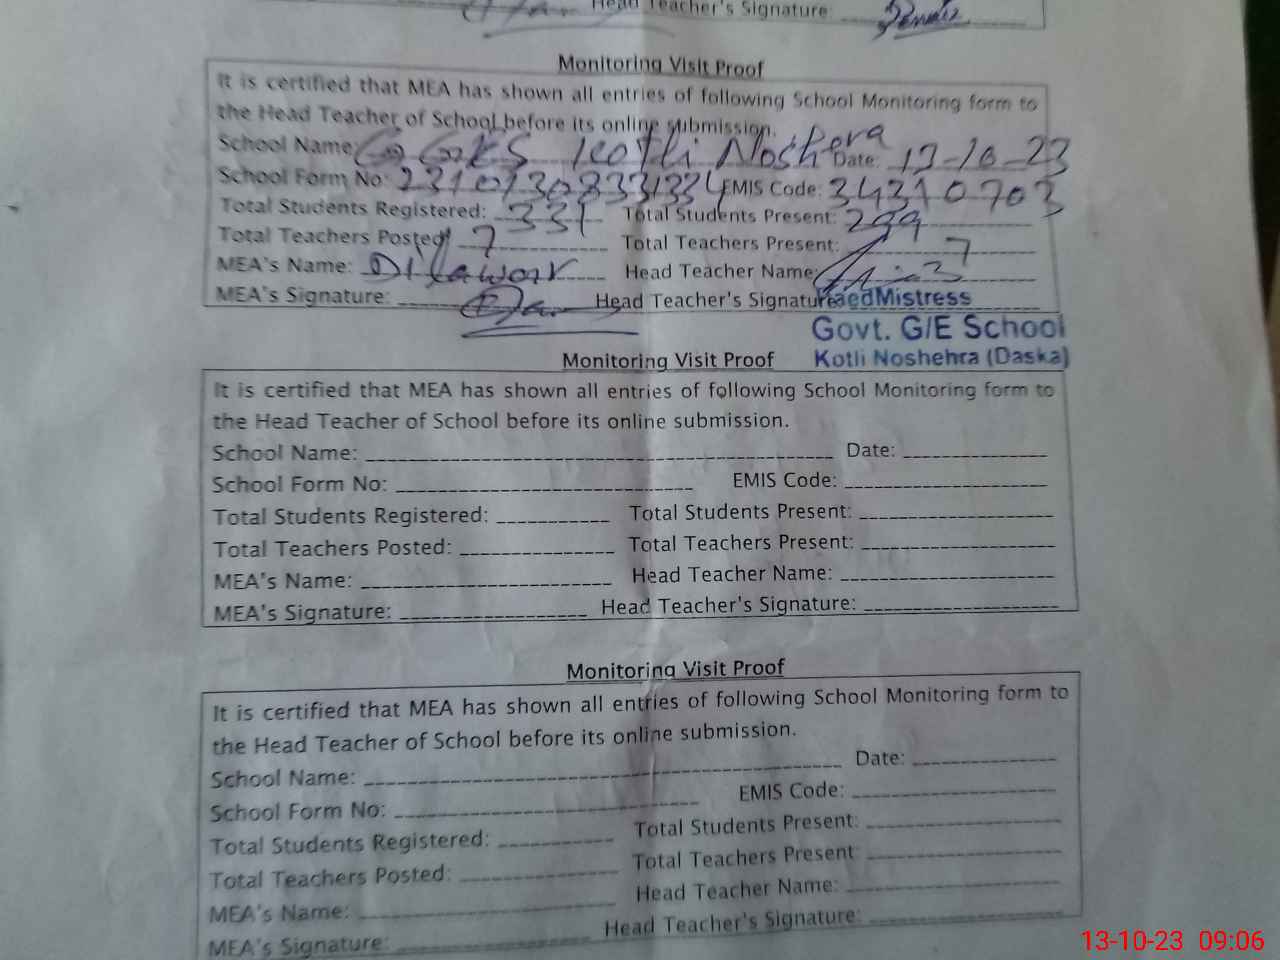 Head Teacher's Signature:
Monitoring Visit Proof
It is certified that MEA has shown all entries of following School Monitoring form to
the Head Teacher of School before its online submission.
School Name: Kotli Noshera Date: 13-10-23
School Form No: EMIS Code: 34310703
Total Students Registered: 331 Total Students Present: 299
Total Teachers Posted: 7 Total Teachers Present: 7
MEA's Name: Dilawar Head Teacher Name:
MEA's Signature: Head Teacher's Signature: HaedMistress
Govt. G/E School
Kotli Noshehra (Daska)
Monitoring Visit Proof
It is certified that MEA has shown all entries of following School Monitoring form to
the Head Teacher of School before its online submission.
School Name: Date:
School Form No: EMIS Code:
Total Students Registered: Total Students Present:
Total Teachers Posted: Total Teachers Present:
MEA's Name: Head Teacher Name:
MEA's Signature: Head Teacher's Signature:
Monitoring Visit Proof
It is certified that MEA has shown all entries of following School Monitoring form to
the Head Teacher of School before its online submission.
School Name: Date:
School Form No: EMIS Code:
Total Students Registered: Total Students Present:
Total Teachers Posted: Total Teachers Present:
MEA's Name: Head Teacher Name:
MEA's Signature: Head Teacher's Signature:
13-10-23 09:06